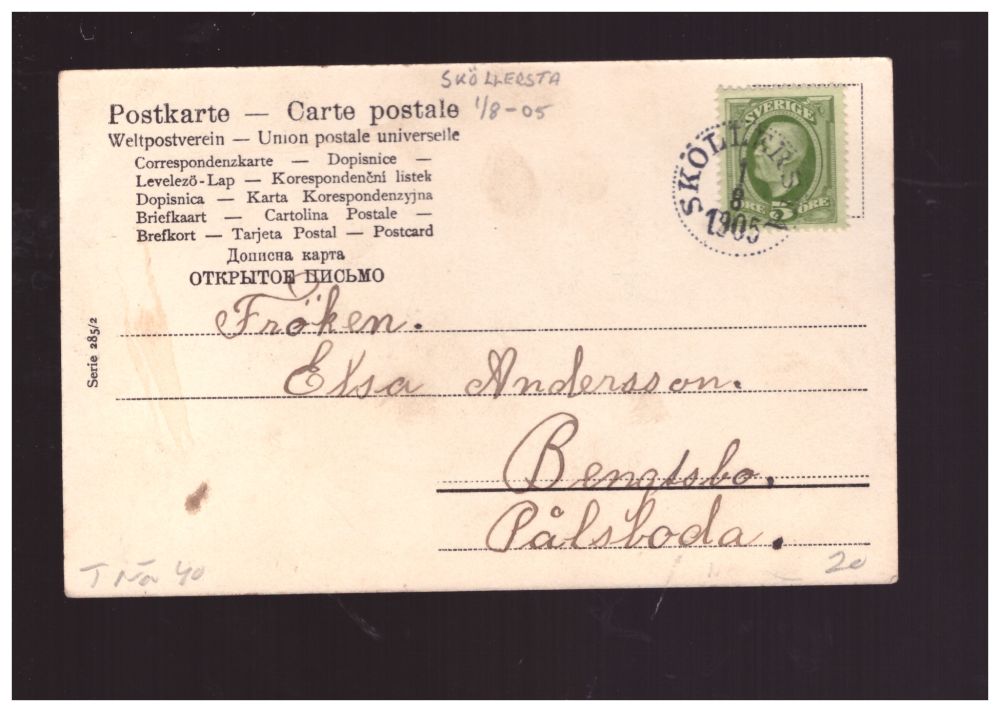 SKÖLLERSTA
1/8-05
Postkarte — Carte postale
Weltpostverein — Union postale universelle
Correspondenzkarte — Dopisnice —
Levelező-Lap — Korespondenční listek
Dopisnica — Karta Korespondenzyjna
Briefkaart — Cartolina Postale —
Brefkort — Tarjeta Postal — Postcard
Дописна карта
ОТКРЫТОЕ ПИСЬМО
SVERIGE
ÖRE 5 ÖRE
SKÖLLERSTA
1
8
1905
Serie 285/2
Fröken.
Elsa Andersson.
Bengtsbo.
Pålsboda.
T Nä 40
20